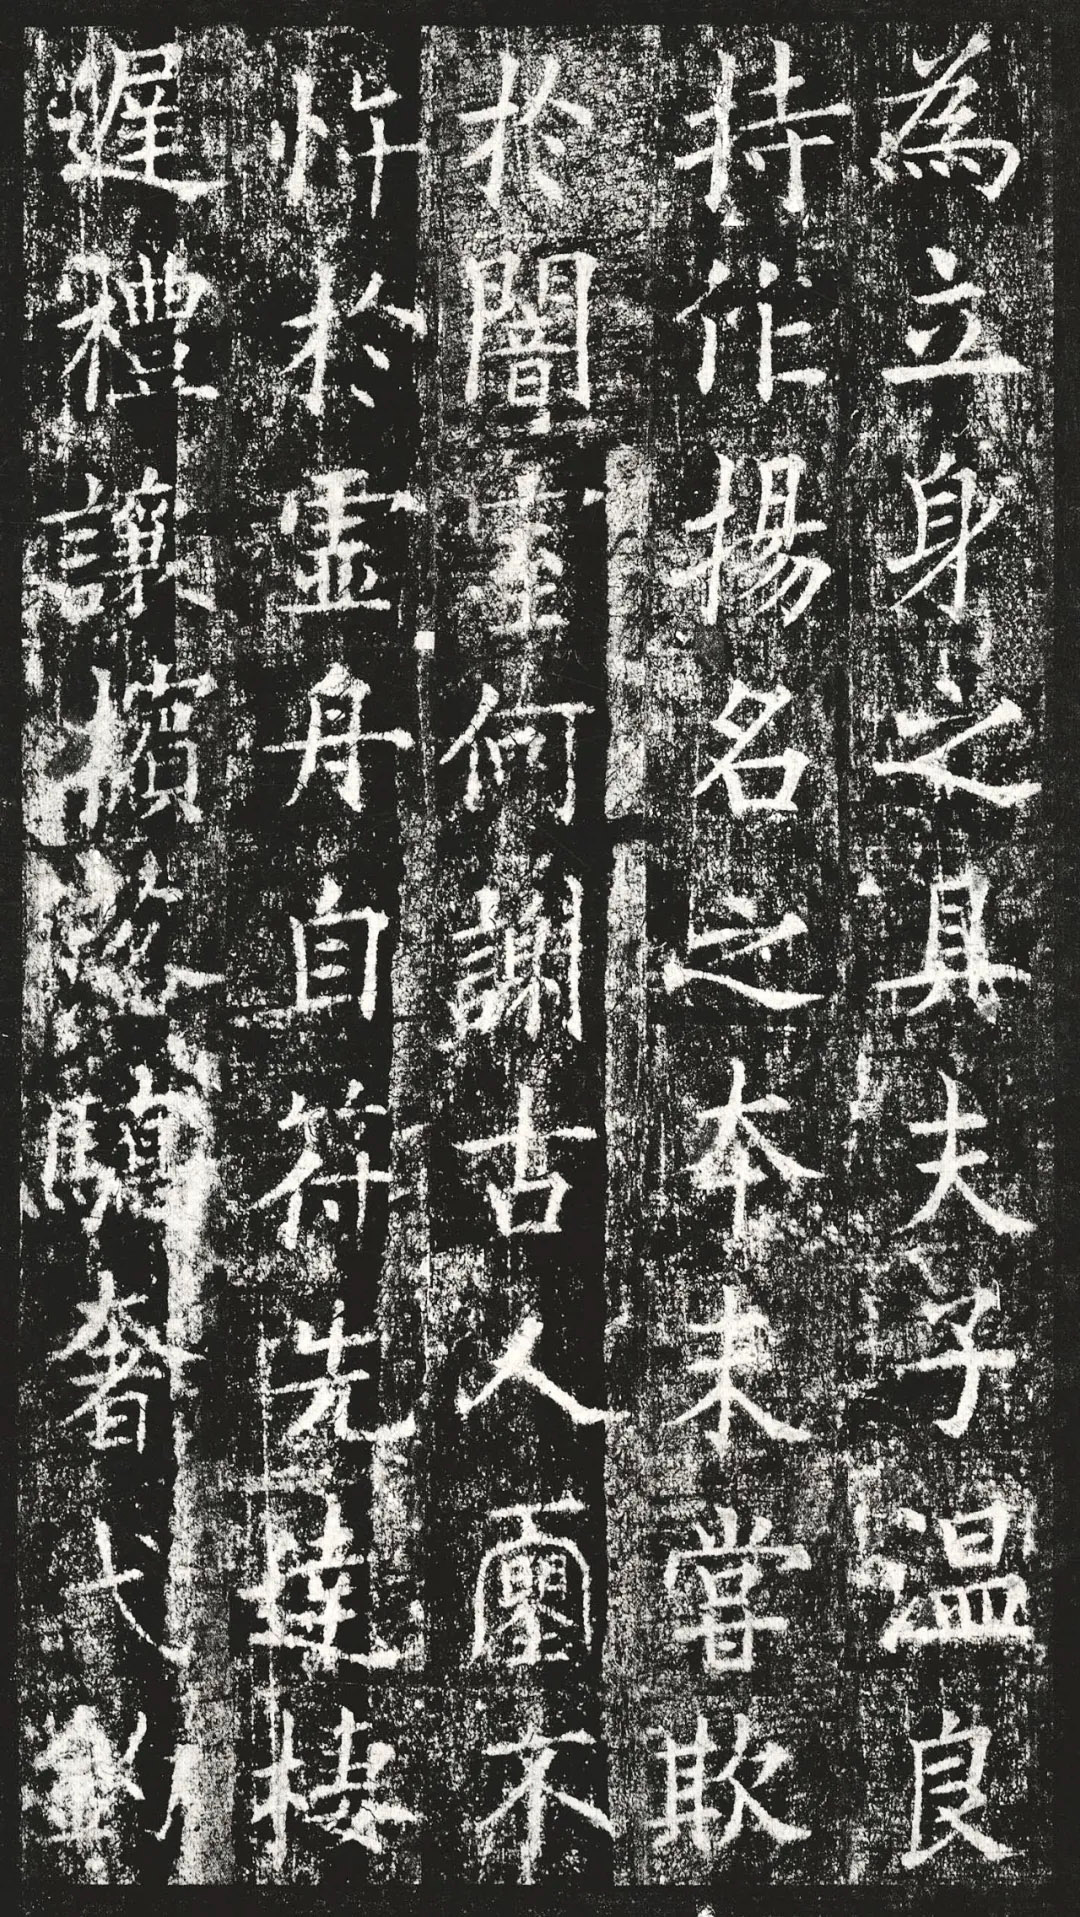 為立身之具夫子溫良
持作揚名之本未甞欺
於闇室何謝古人不
忤於虛舟自符先達棲
遲禮讓擯落驕奢弋